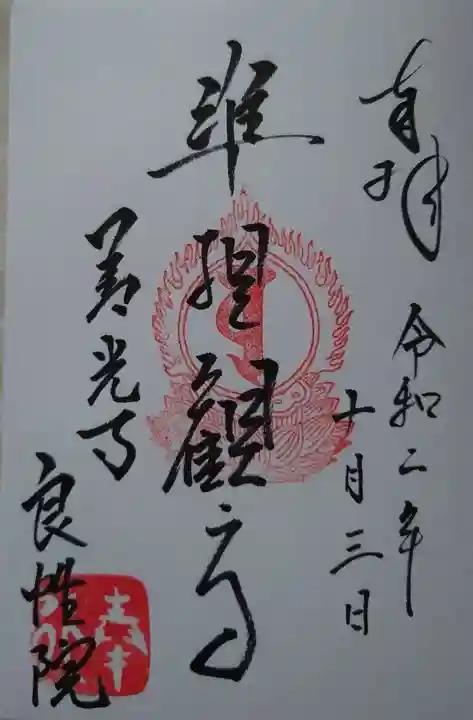 奉拝
令和二年
十月三日
準提観音
善光寺
良性院